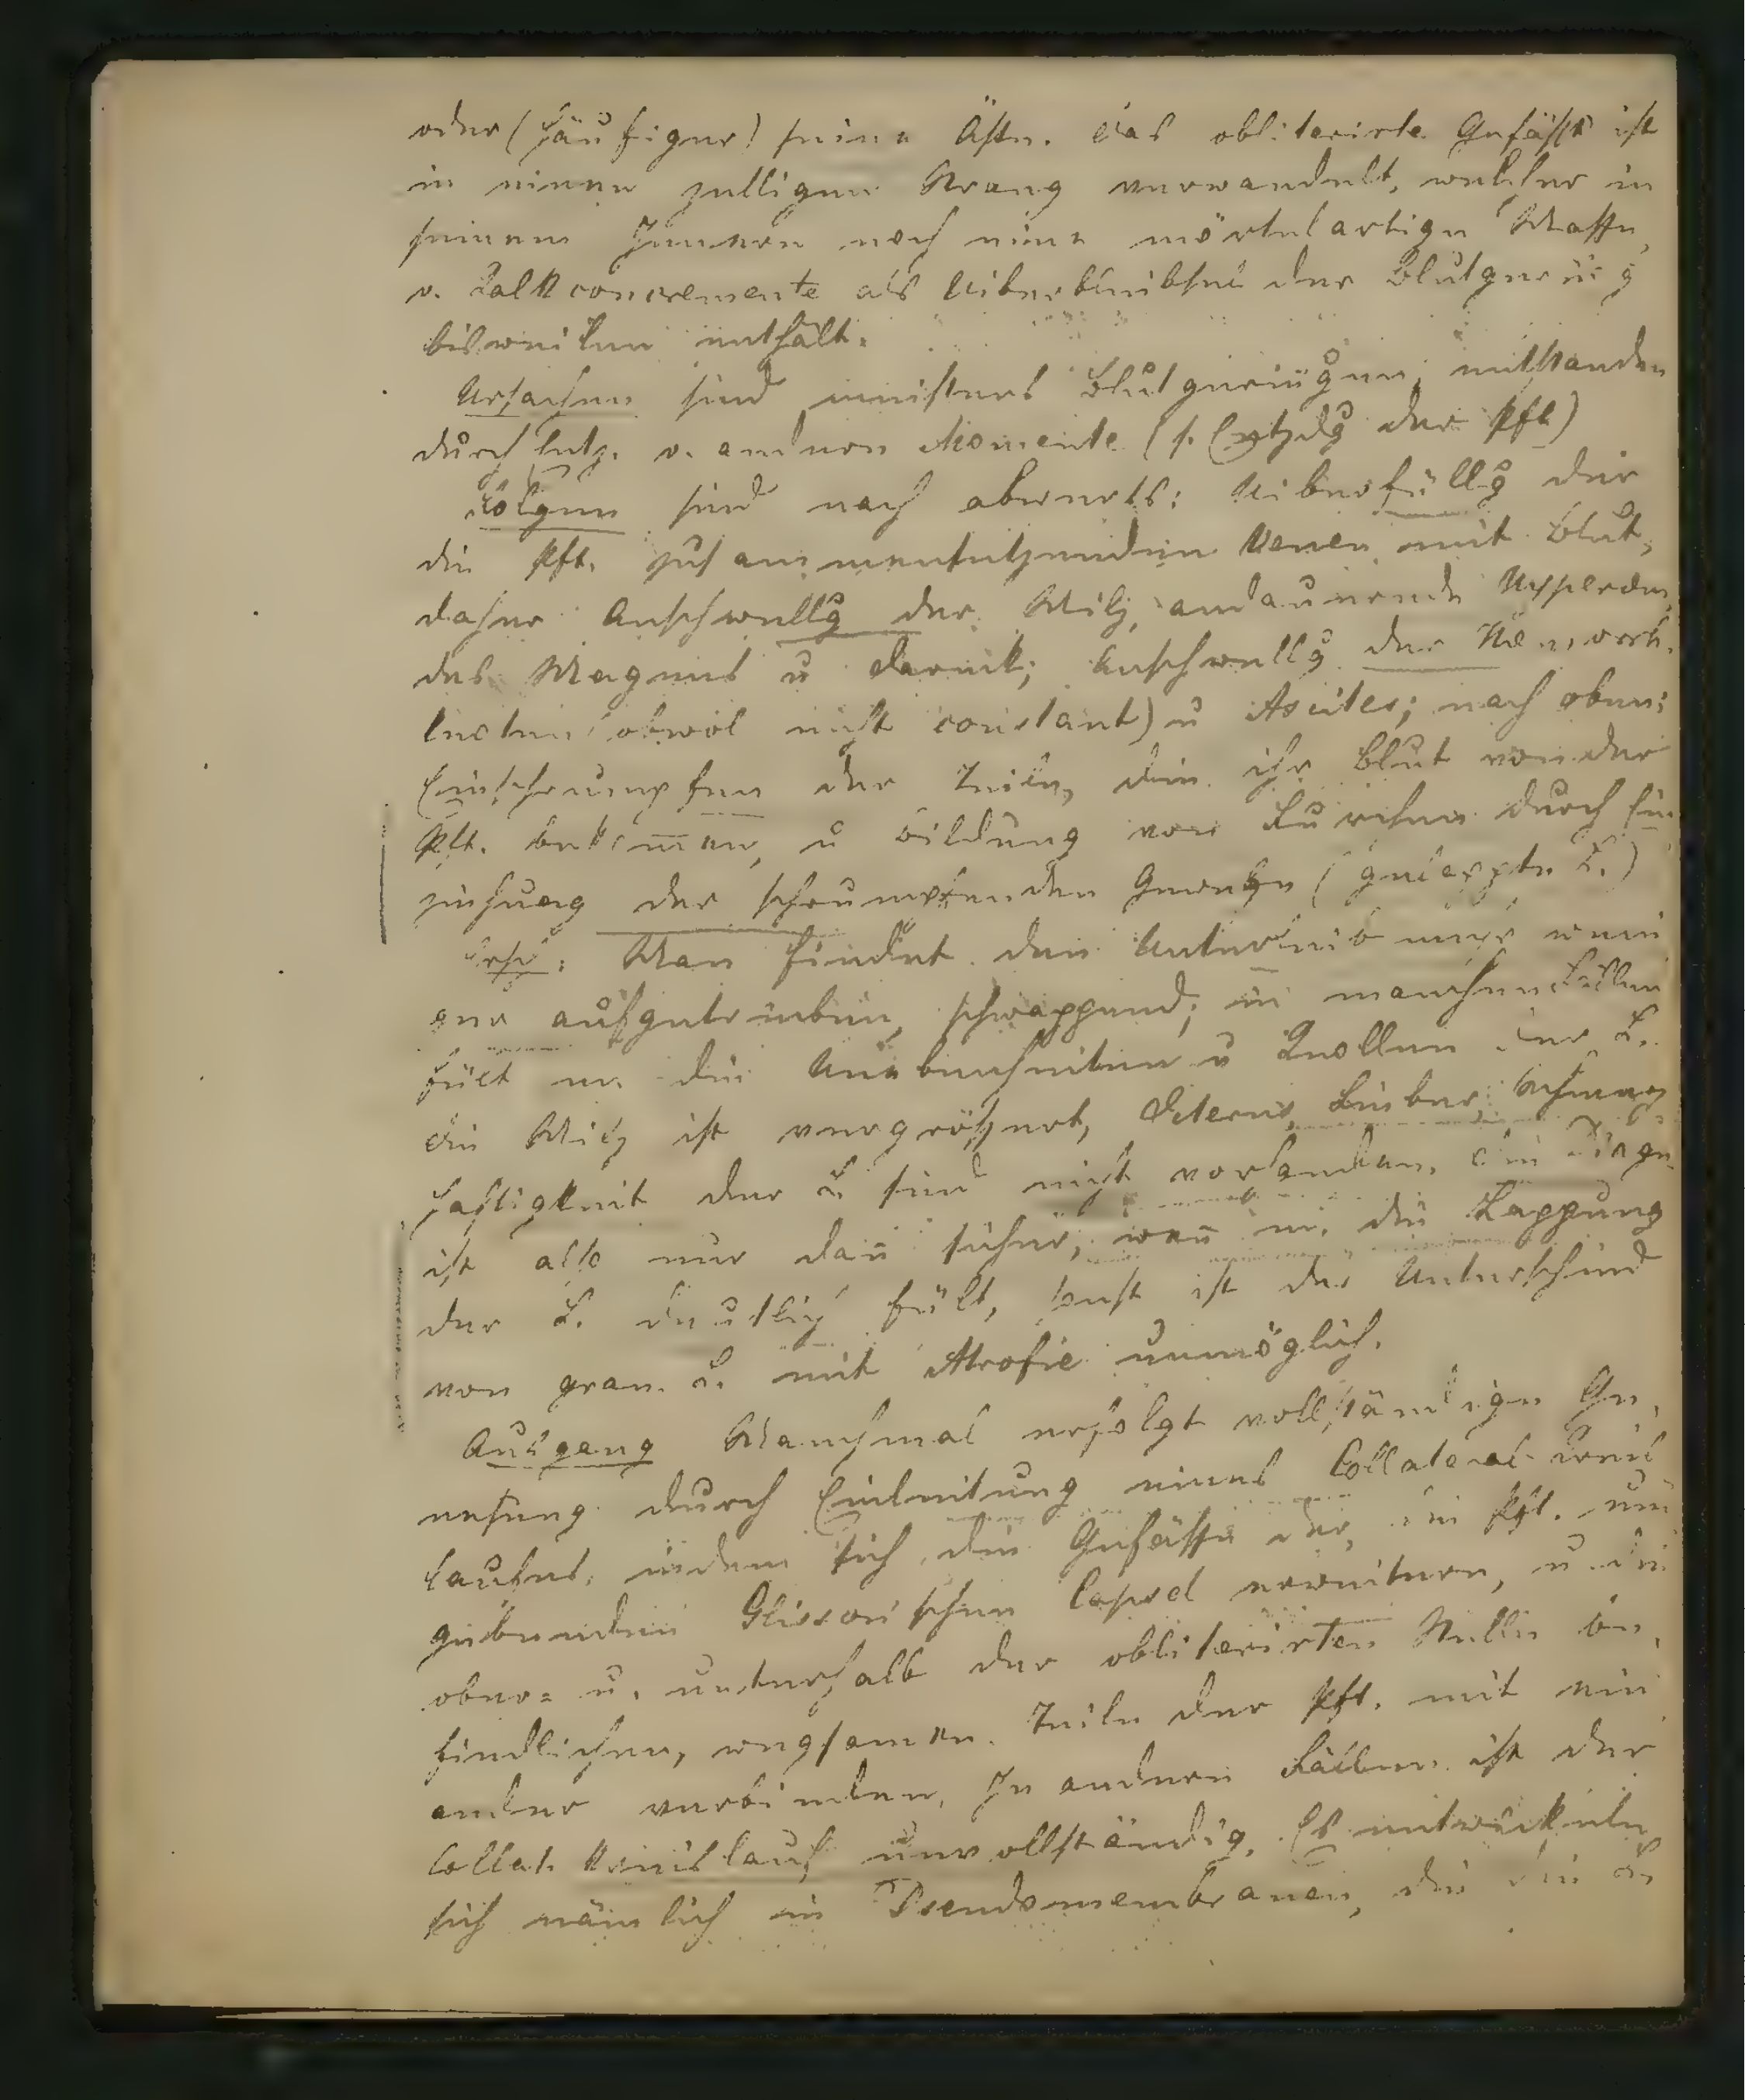 oder (häufiger) seine Äste. Das obliterirte Gefäss ist
in einen zelligen Strang verwandelt, welcher in
seinem Inneren noch eine mörtelartige Masse,
o. Kalkconcremente als Uiberbleibsel der Blutgering
bisweilen enthält.
Ursachen sind meistens Blutgeringen, entstanden
durch o. anderen Momente (s. Entzdg der Pft)
Folgen sind nach abwerts: Uiberfüllg der
die Pft. zusammensetzenden Venen mit Blut,
daher Anschwellg der Milz, andauernde Hyperæm.
des Magens u Darmk; Anschwellg der Hæmorrh.
(obwol nicht constant) u Ascites; nach oben:
Einschrumpfen der Teile, die ihr Blut von der
Pft. bekom̅en, u Bildung von Furchen durch Ein-
ziehung der schrumpfenden Gewebe (gelappte L.)
Man findet den Unterleib mehr weni
ger aufgetrieben, schwappend; in manchen Fällen
fült m. die Unebenheiten u Knollen der L.
die Milz ist vergrößert, Icterus, Fieber,
haftigkeit der L sind nicht vorhanden. Die Diagn.
ist also nur dan̅ sicher, wen̅ m. die Lappung
der L. deutlich fült, sonst ist der Unterschied
von gran. L. mit Atrofie unmöglich.
Ausgang Manchmal erfolgt vollständige Ge-
nesung durch Einleitung eines Collateral-Kreis
laufes, indem sich die Gefässe der, die Pft. um
gebenden Glisson'schen Capsel erweitern, u die
ober= u. unterhalb der obliterirten Stelle be-
findlichen, wegsamen Teile der Pft. mit ein
ander verbinden. In anderen Fällen ist der
Collat. Kreislauf unvollständig. Es entwickeln
sich nämlich in Pseudomembranen, die die L